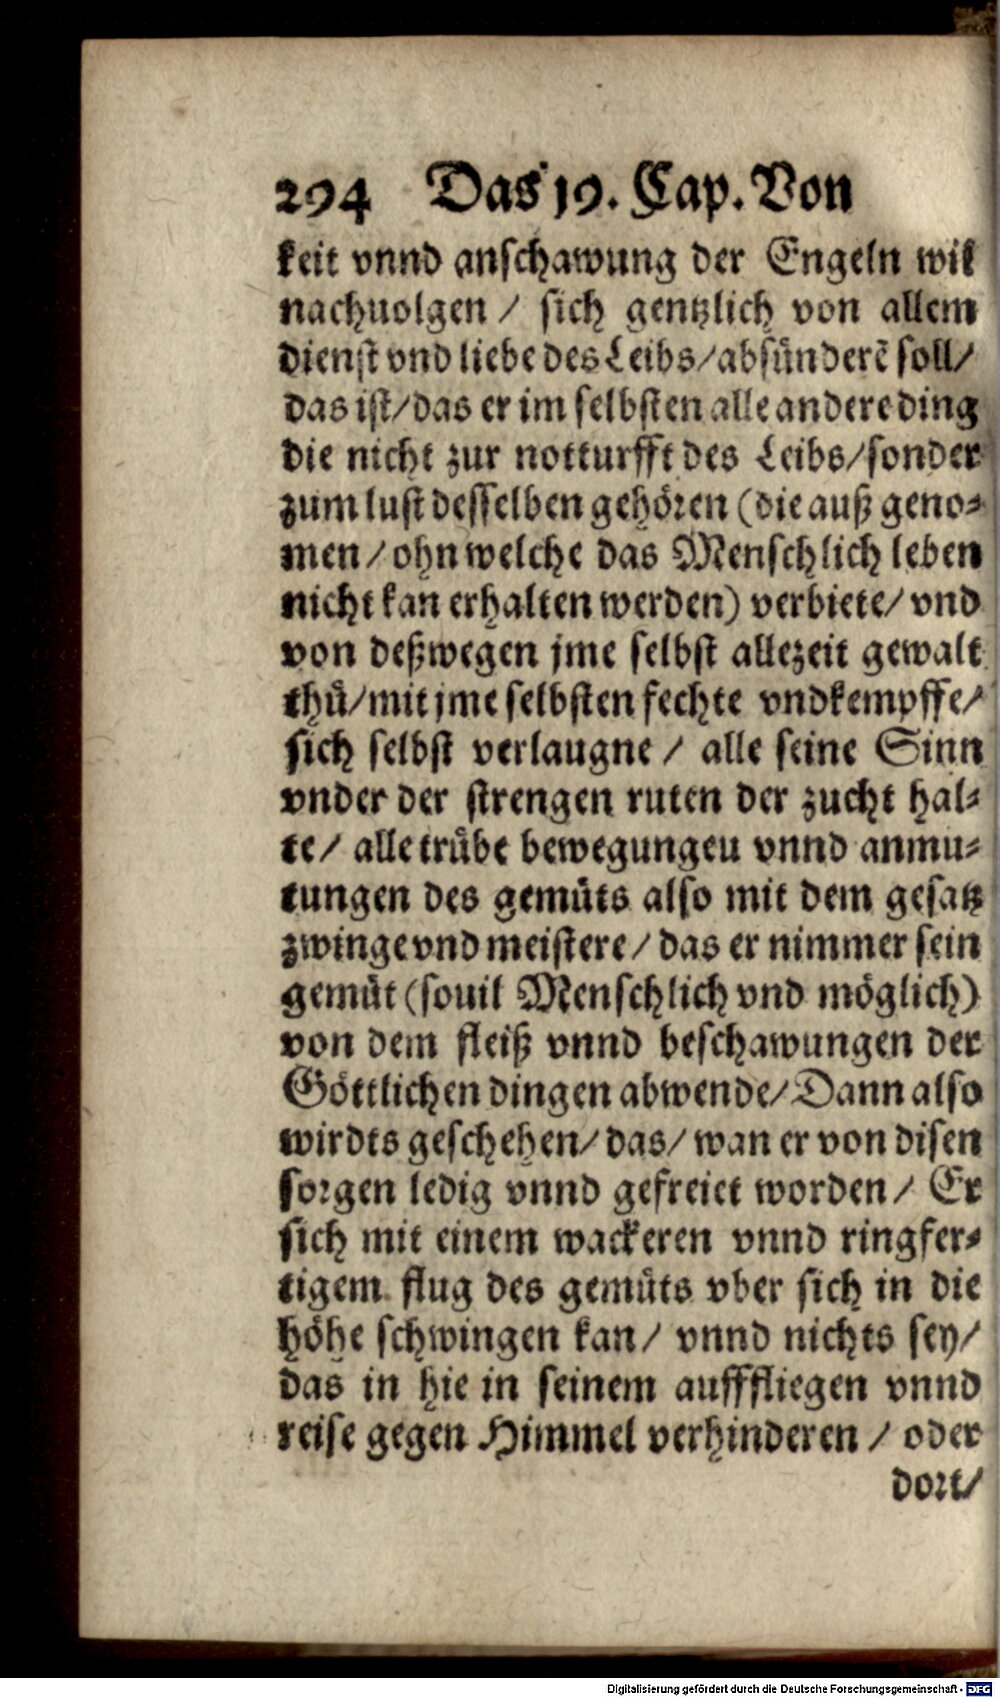 294 Das 19. Cap. Von
keit vnnd anschawung der Engeln wil
nachuolgen / sich gentzlich von allem
dienst vnd liebe des Leibs/absünderẽ soll/
das ist/das er im selbsten alle andere ding
die nicht zur notturfft des Leibs/sonder
zum lust desselben gehören (die auß geno⸗
men / ohn welche das Menschlich leben
nicht kan erhalten werden) verbiete/ vnd
von deßwegen jme selbst allezeit gewalt
thů/mit jme selbsten fechte vnd kempffe/
sich selbst verlaugne / alle seine Sinn
vnder der strengen ruten der zucht hal⸗
te/ alle trübe bewegungeu vnnd anmu⸗
tungen des gemüts also mit dem gesatz
zwinge vnd meistere / das er nimmer sein
gemüt (souil Menschlich vnd möglich)
von dem fleiß vnnd beschawungen der
Göttlichen dingen abwende/ Dann also
wirdts geschehen/ das/ wan er von disen
sorgen ledig vnnd gefreiet worden / Er
sich mit einem wackeren vnnd ringfer⸗
tigem flug des gemüts vber sich in die
höhe schwingen kan/ vnnd nichts sey/
das in hie in seinem aufffliegen vnnd
reise gegen Himmel verhinderen / oder
dort/
Digitalisierung gefördert durch die Deutsche Forschungsgemeinschaft - DFG